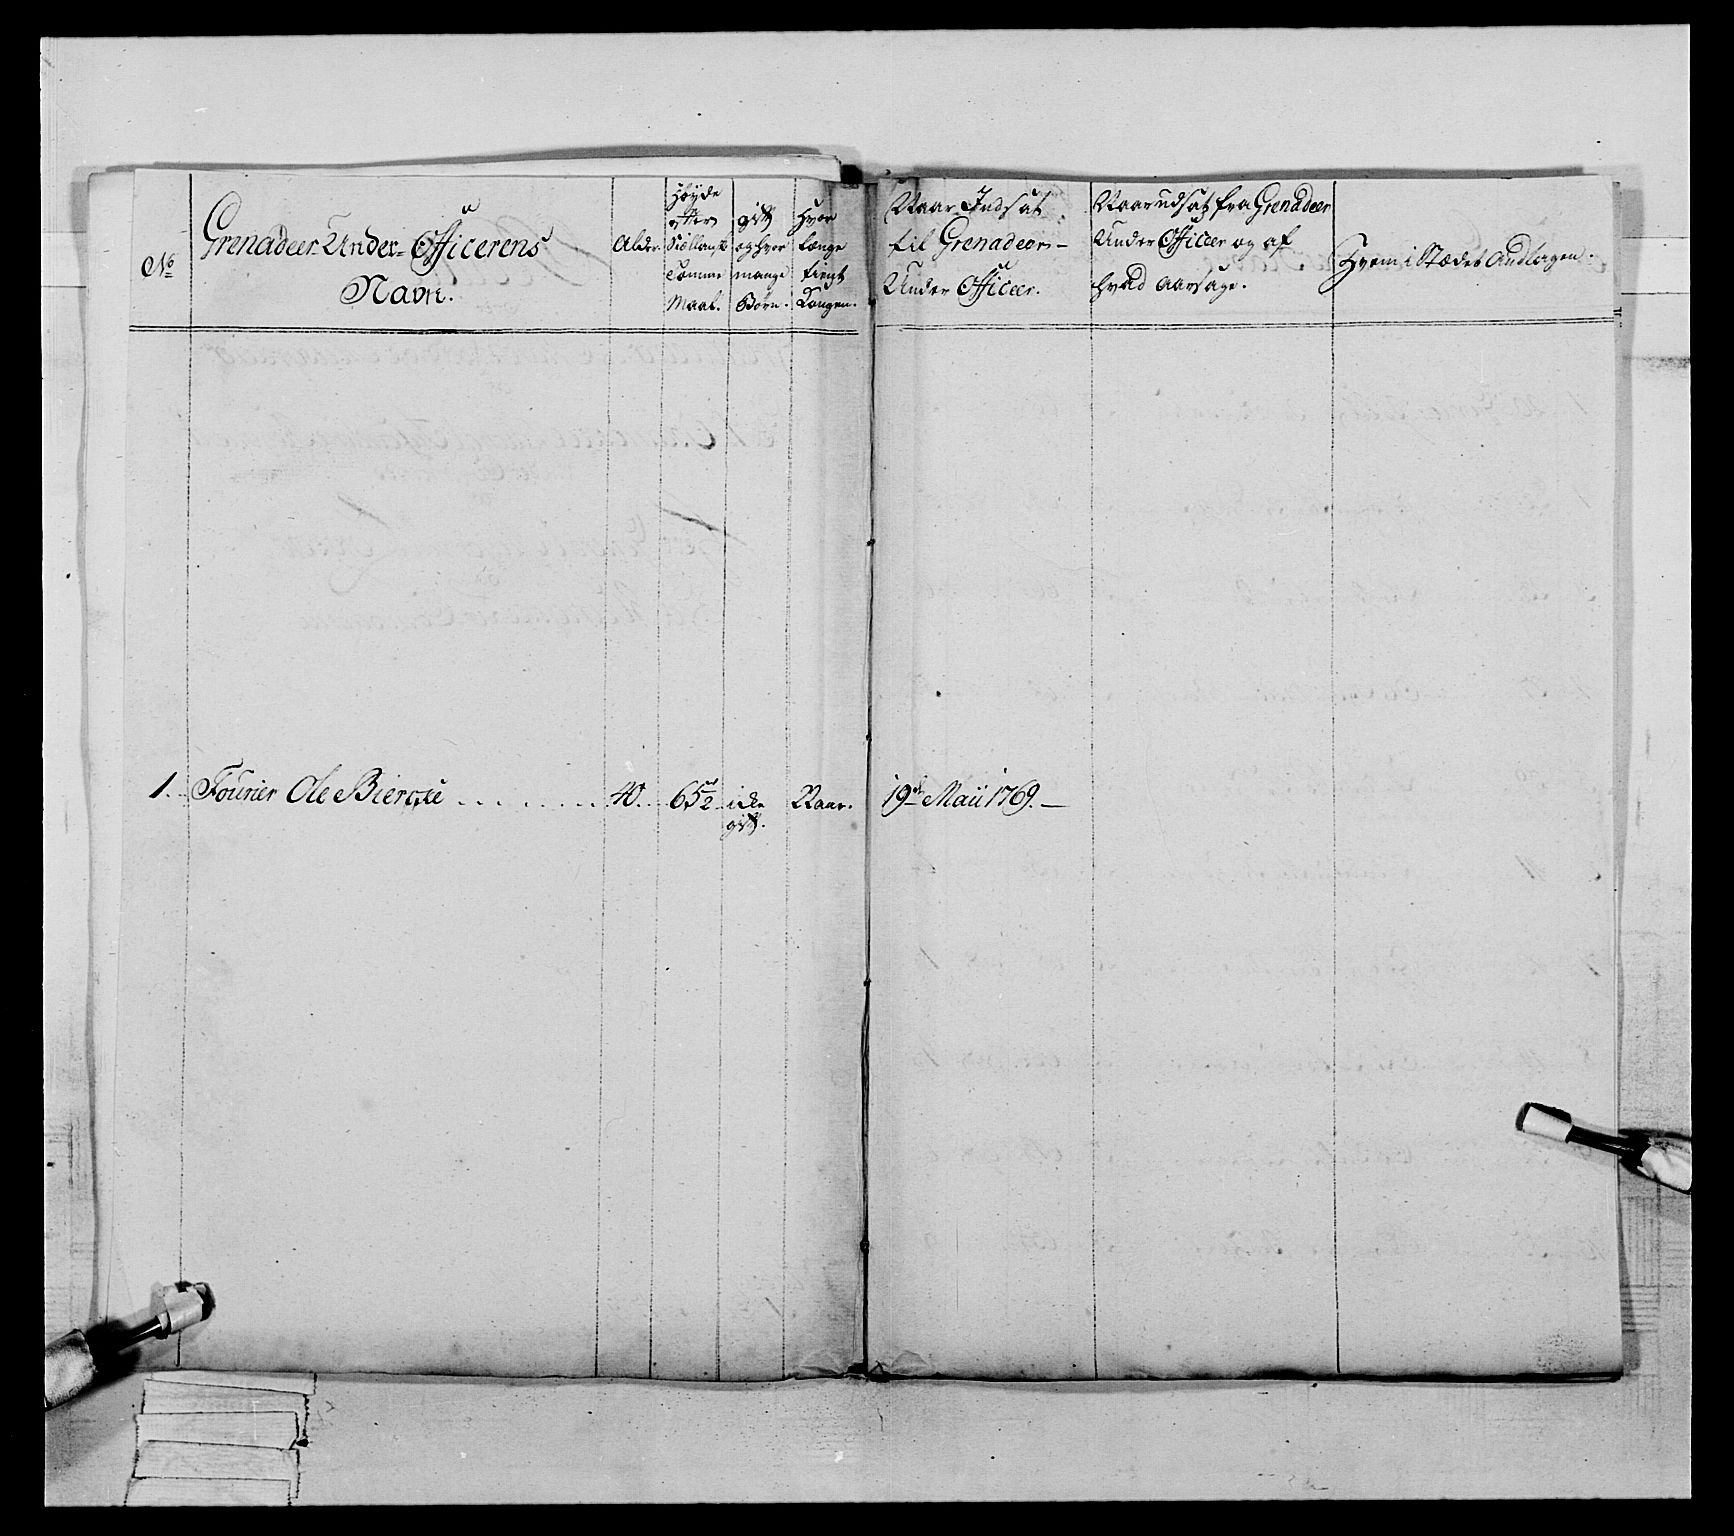 No
Grenadeer-Under-Officerens
Navn.
Alder
Høyde
efter
Siællansk
Tomme
Maal.
gift
og hvor
mange
Børn.
Hvor
længe
tient
Kongen.
Naar Indsat
til Grenadeer-
Under Officeer.
Naar udsat fra Grenadeer
Under Officeer og af
hvad Aarsage.
Hvem i Stædet Andtagen.
1. Fourier Ole Biercke 40. 65½ icke Naar. 19de Maii 1769.
gift.